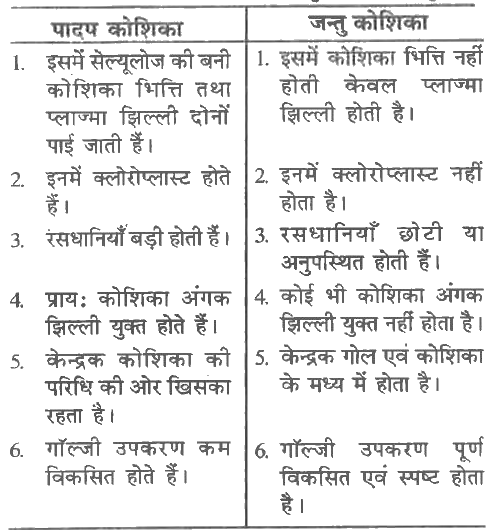 पादप कोशिका
1. इसमें सेल्यूलोज की बनी
कोशिका भित्ति तथा
प्लाज्मा झिल्ली दोनों
पाई जाती हैं।
2. इनमें क्लोरोप्लास्ट होते
हैं।
3. रसधानियाँ बड़ी होती हैं।
4. प्रायः कोशिका अंगक
झिल्ली युक्त होते हैं।
5. केन्द्रक कोशिका की
परिधि की ओर खिसका
रहता है।
6. गॉल्जी उपकरण कम
विकसित होते हैं।
जन्तु कोशिका
1. इसमें कोशिका भित्ति नहीं
होती केवल प्लाज्मा
झिल्ली होती है।
2. इनमें क्लोरोप्लास्ट नहीं
होता है।
3. रसधानियाँ छोटी या
अनुपस्थित होती हैं।
4. कोई भी कोशिका अंगक
झिल्ली युक्त नहीं होता है।
5. केन्द्रक गोल एवं कोशिका
के मध्य में होता है।
6. गॉल्जी उपकरण पूर्ण
विकसित एवं स्पष्ट होता
है।